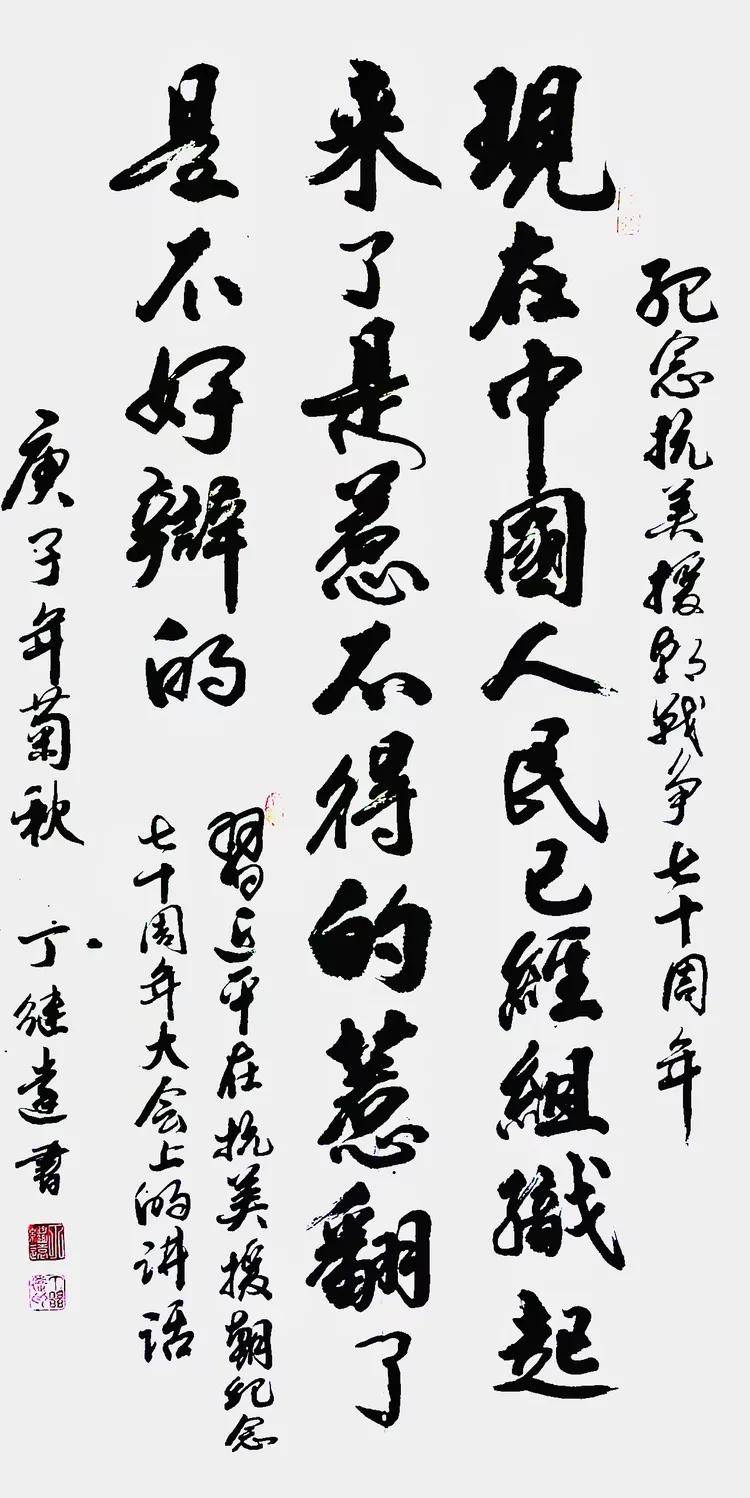 纪念抗美援朝战争七十周年
現在中國人民已經組織起
来了是惹不得的惹翻了
是不好辦的
習近平在抗美援朝纪念
七十周年大会上的讲话
庚子年菊秋 丁继遠書